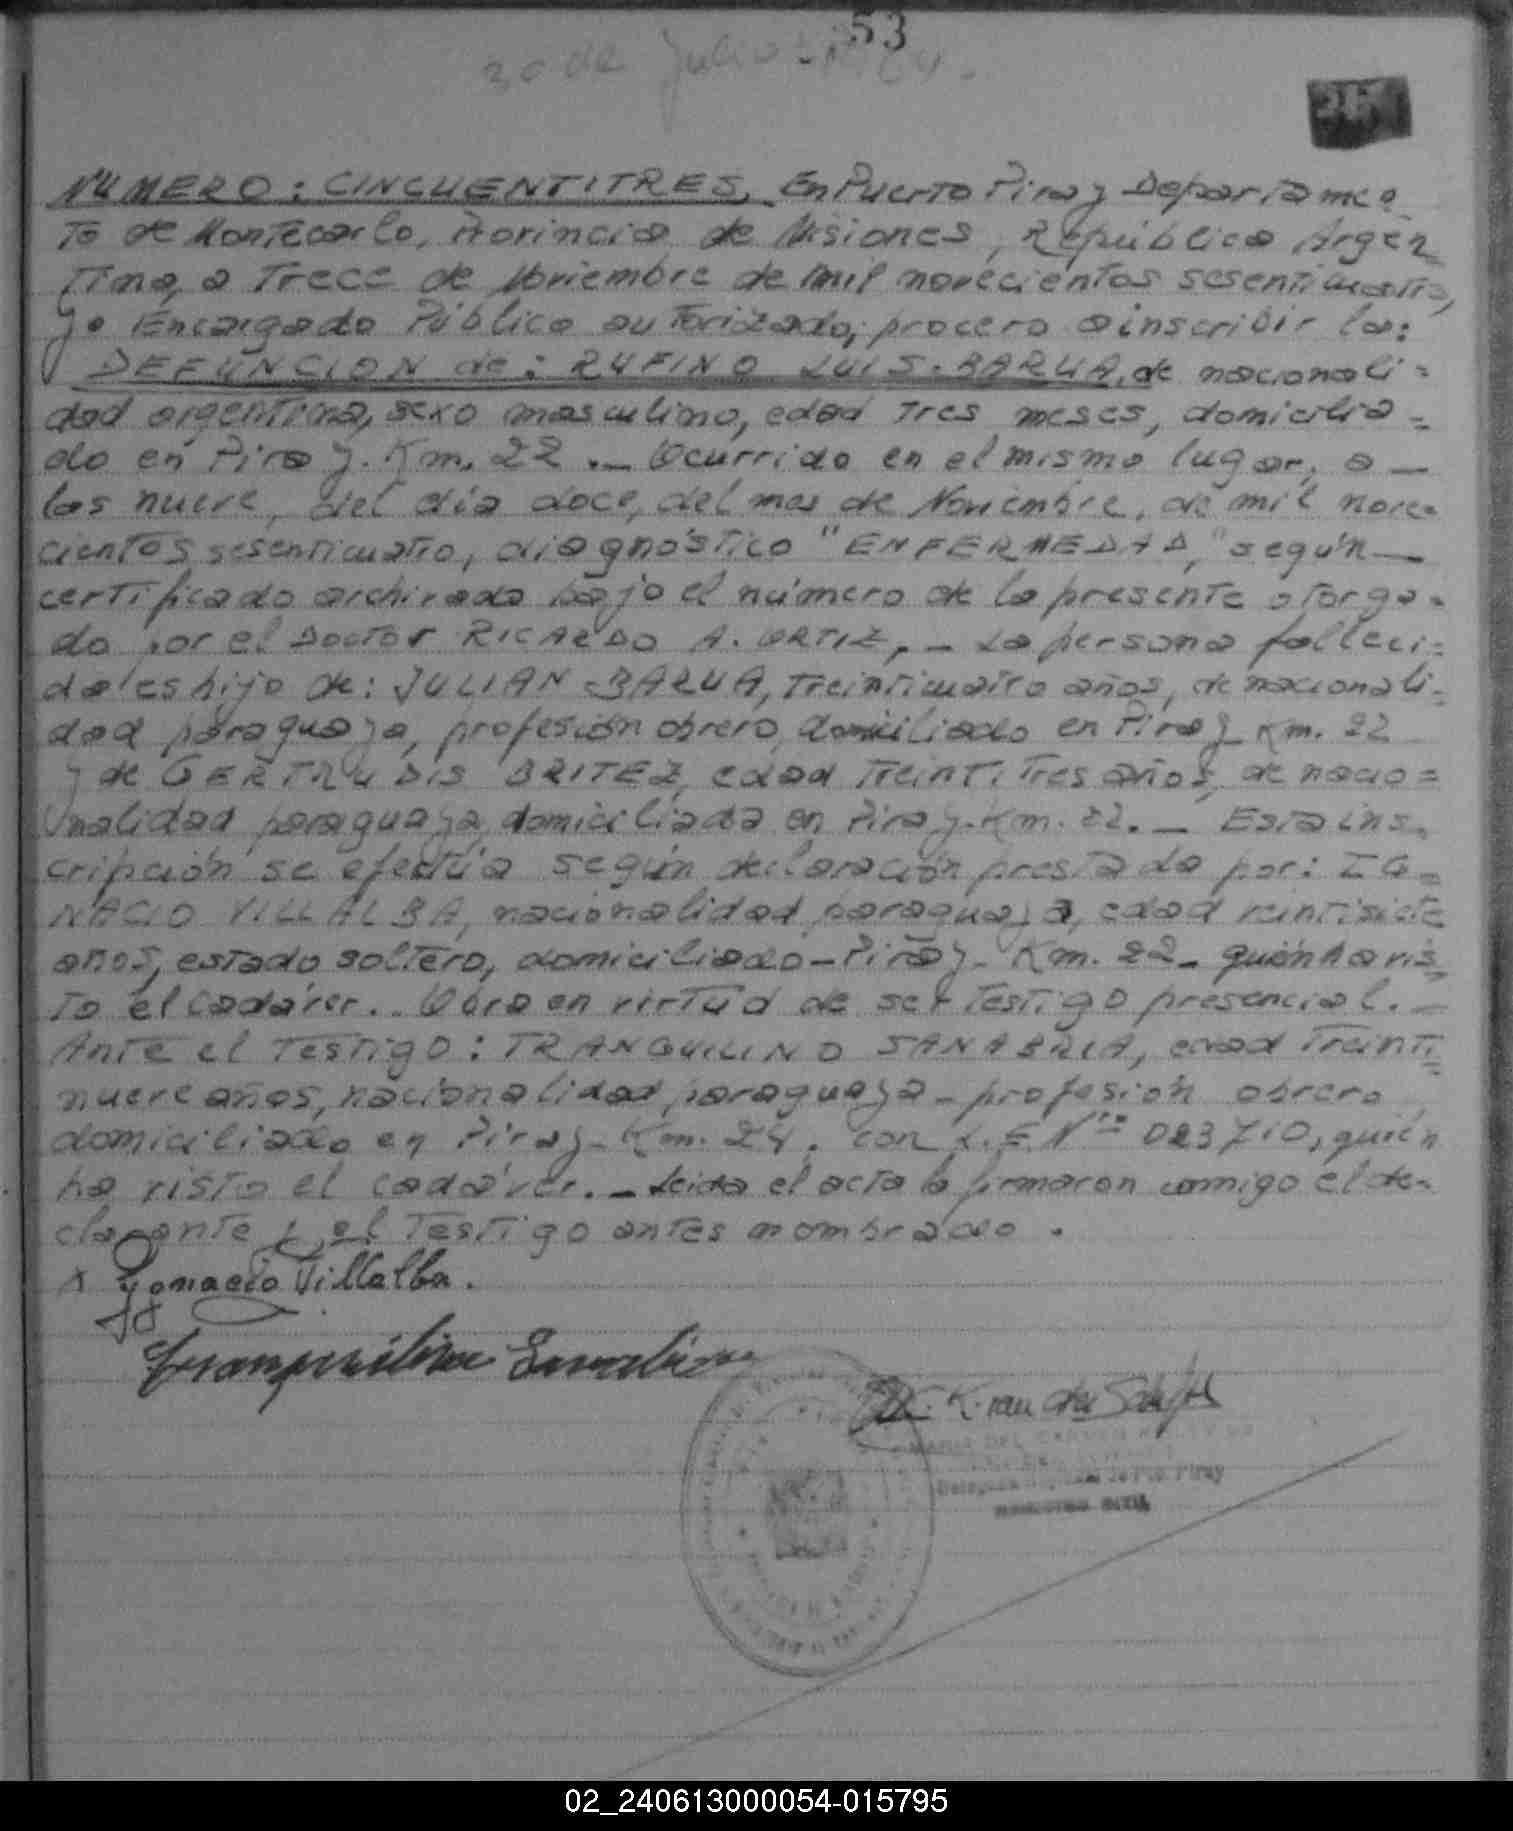 53
30 de Julio
NUMERO: CINCUENTITRES, En Puerto Piray Departamen-
to de Montecarlo, Provincia de Misiones, República Argen
tina, a trece de Noviembre de mil novecientos sesenticuatro,
yo Encargado Público autorizado, procero a inscribir la:
DEFUNCION de: RUFINO LUIS. BARUA, de nacionali=
dad argentina, sexo masculino, edad tres meses, domicilia=
do en Piray. Km. 22 ._ Ocurrido en el mismo lugar, a _
las nueve, del día doce, del mes de Noviembre, de mil nove=
cientos sesenticuatro, diagnóstico "ENFERMEDAD," según _
certificado archivado bajo el número de la presente otorga=
do por el Doctor RICARDO A. ORTIZ, ._ La persona falleci=
da es hijo de: JULIAN BARUA, treinticuatro años, de nacionali=
dad paraguaya, profesión obrero, domiciliado en Piray Km. 22
y de GERTRUDIS BRITEZ, edad treintitres años, de nacio=
nalidad paraguaya, domiciliada en Piray. Km. 22. _ Esta ins=
cripción se efectúa según declaración prestada por: IG=
NACIO VILLALBA, nacionalidad paraguaya, edad veintisiete
años, estado soltero, domiciliado-Piray- Km. 22- quién ha vis=
to el cadáver.. Obra en virtud de ser testigo presencial. _
Ante el testigo: TRANQUILINO SANABRIA, edad treinti=
nueve años, nacionalidad paraguaya - profesión obrero,
domiciliado en Piray- Km. 24. con L.E. Nro 023710, quién
ha visto el cadáver. _ Leida el acta la firmaron conmigo el de=
clarante y el testigo antes nombrado .
x Ygnacio Villalba.
Tranquilino Sanabria
MARIA DEL CARMEN
Piray
REGISTRO CIVIL
02_240613000054-015795